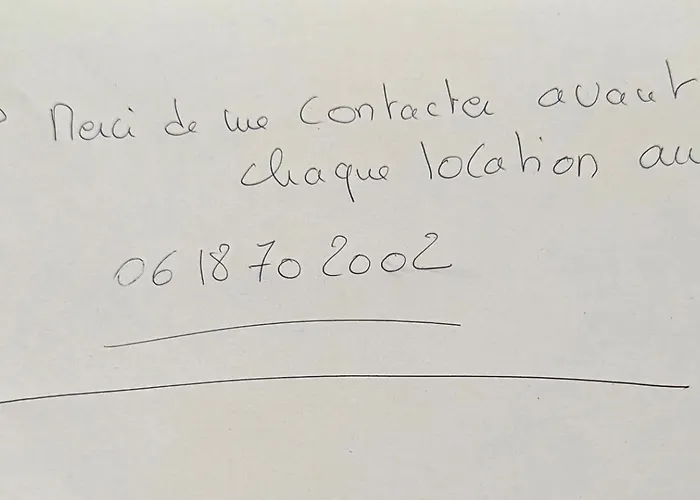 Merci de me contacter avant
chaque location au
06 18 70 2002